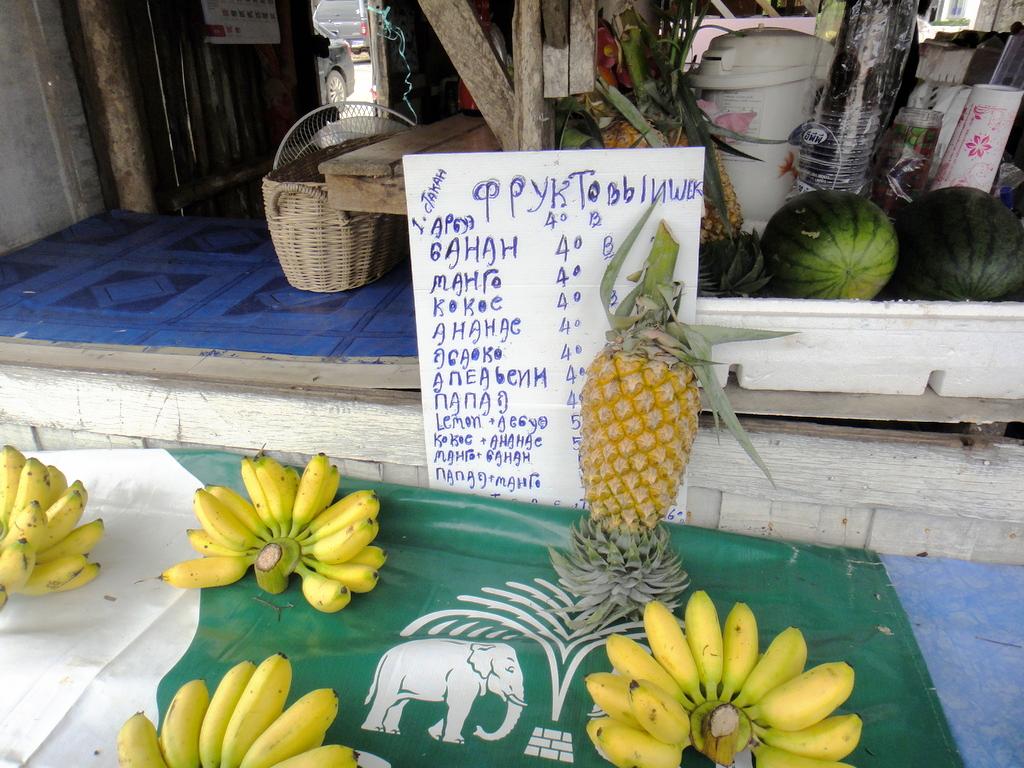 1. СТАКАН
ФРУКТОВЫИ ШЕК
АРБУЗ 40 B
БАНАН 40 B
МАНГО 40
КОКОС 40 B
АНАНАС 40
ЯБЛОКО 40
АПЕЛЬСИН 40
ПАПАЯ 4
Lemon + АРБУЗ 5
КОКОС + АНАНАС 5
МАНГО + БАНАН
ПАПАЯ + МАНГО